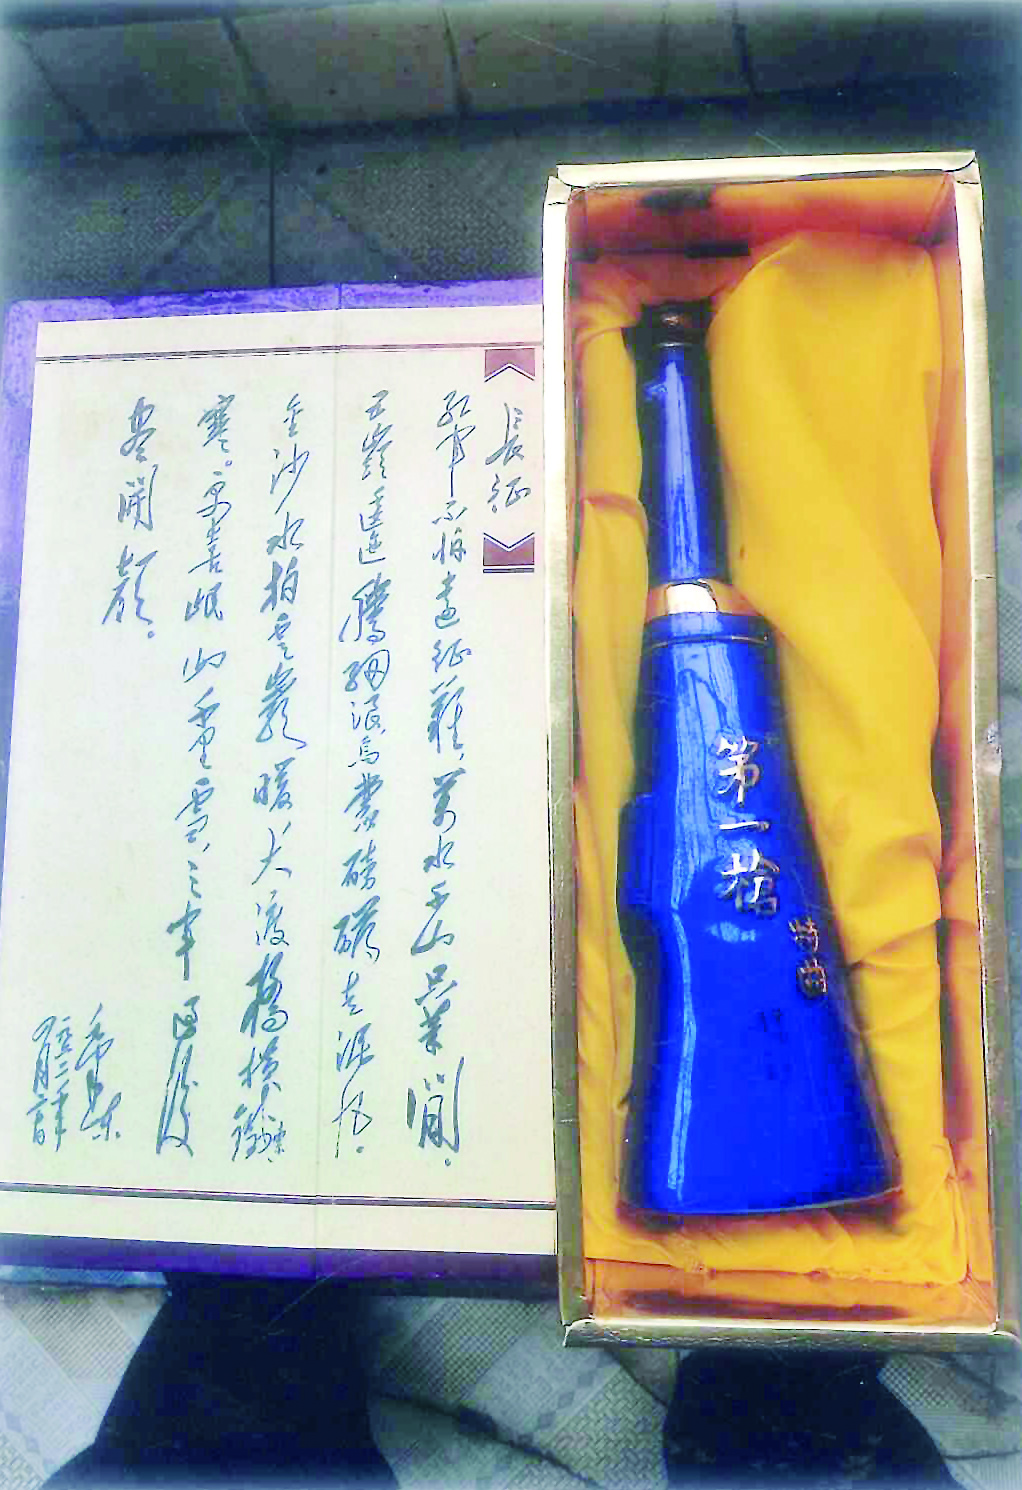 長征
紅軍不怕遠征難,萬水千山只等閒。
五嶺逶迤騰細浪,烏蒙磅礴走泥丸。
金沙水拍雲崖暖,大渡橋橫鐵索
寒。更喜岷山千里雪,三軍過後
盡開顏。
毛澤東
第一槍
特曲